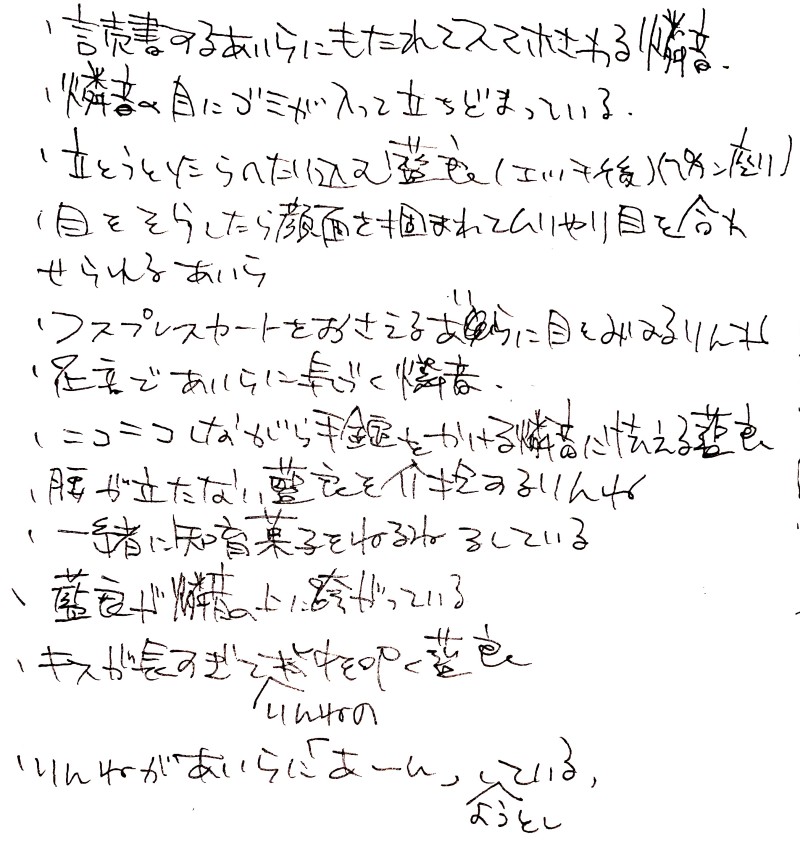 、読書するあいらにもたれてスマホさわる燐音.
、燐音の目にゴミが入って立ちどまっている.
、立とうとしたらへたり込む藍良(エッチ後)(ペタン座り)
、目をそらしたら顔面を掴まれてムリやり目を合わ
せられるあいら
、コスプレスカートをおさえるあいらに目をみはるりんね
、足音であいらに気づく燐音.
、ニコニコしながら手錠をかける燐音に怯える藍良
、腰が立たない藍良を介抱するりんね
、一緒に知育菓子をねるねるしている
、藍良が燐音の上に跨がっている
、キスが長すぎて背中を叩く藍良
りんねの
、りんねがあいらに「あーん」している,
ようとし